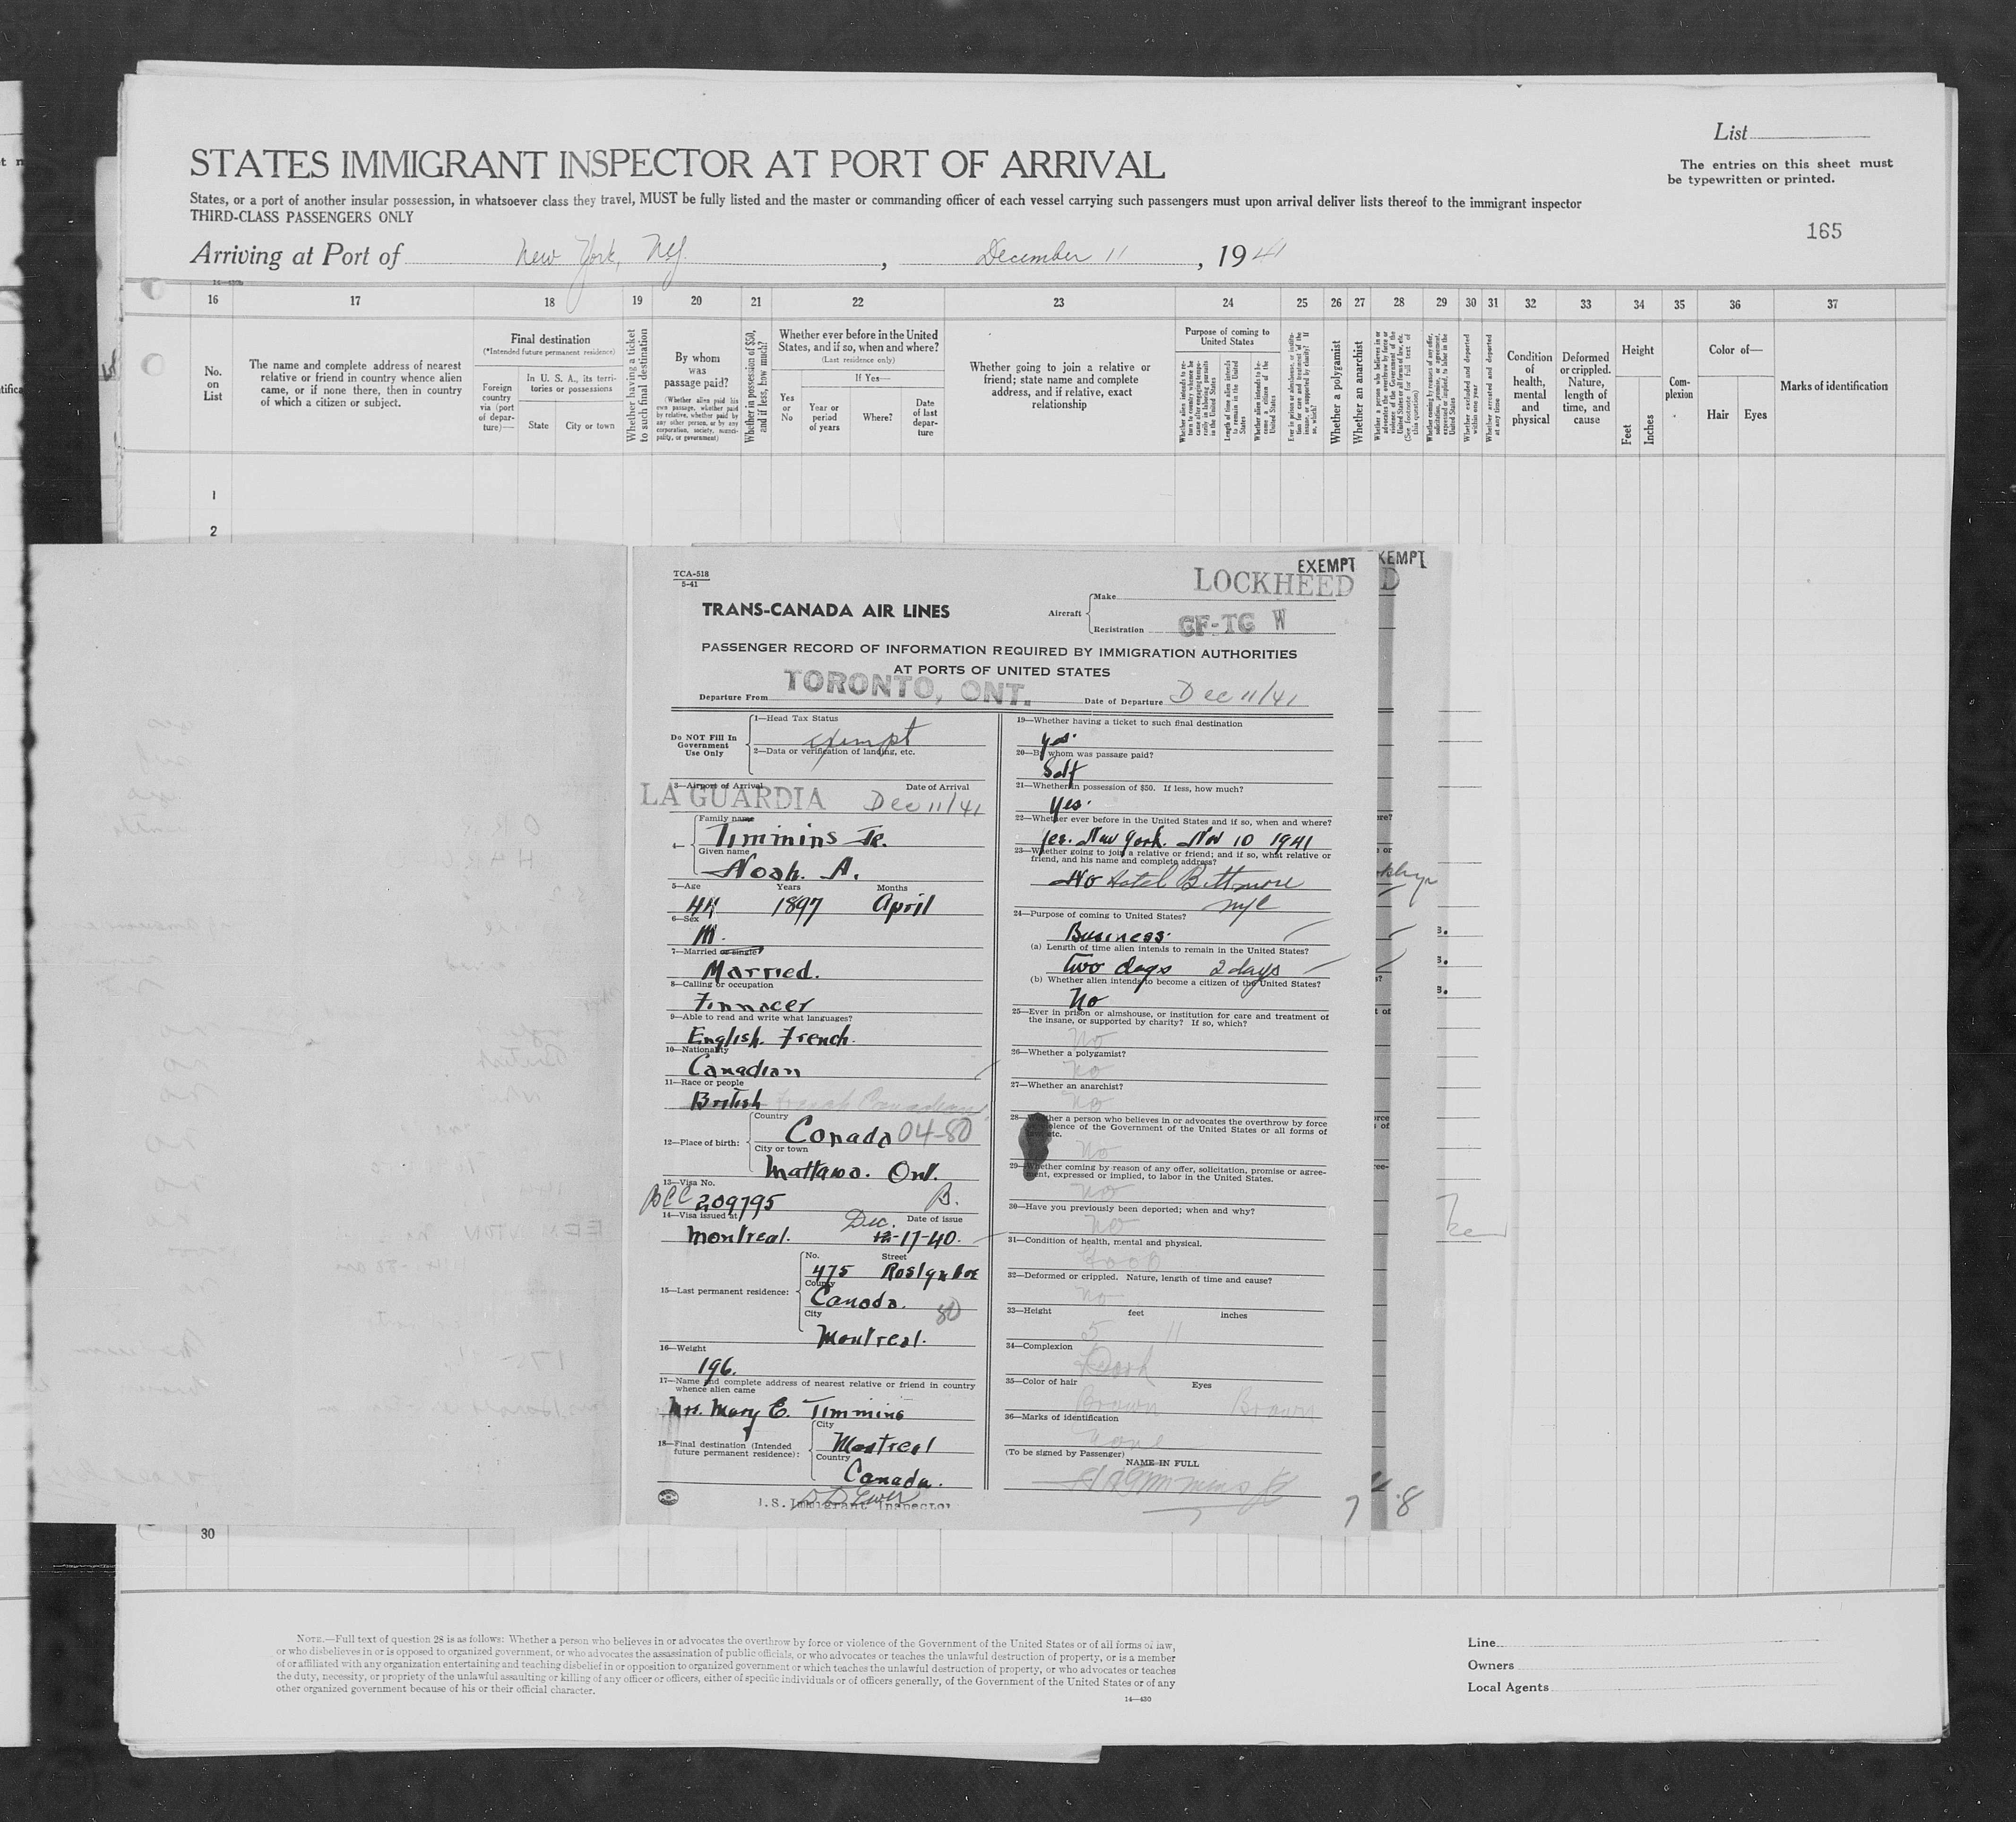 List
STATES IMMIGRANT INSPECTOR AT PORT OF ARRIVAL
The entries on this sheet must
be typewritten or printed.
States, or a port of another insular possession, in whatsoever class they travel, MUST be fully listed and the master or commanding officer of each vessel carrying such passengers must upon arrival deliver lists thereof to the immigrant inspector
THIRD-CLASS PASSENGERS ONLY
165
Arriving at Port of New York, NY. , December 11 , 1941
16 17 18 19 20 21 22 23 24 25 26 27 28 29 30 31 32 33 34 35 36 37
No.
on
List
The name and complete address of nearest
relative or friend in country whence alien
came, or if none there, then in country
of which a citizen or subject.
Final destination
(*Intended future permanent residence)
Foreign
country
via (port
of depar-
ture)—
In U. S. A., its terri-
tories or possessions
State City or town
Whether having a ticket
to such final destination
By whom
was
passage paid?
(Whether alien paid his
own passage, whether paid
by relative, whether paid by
any other person, or by any
corporation, society, munici-
pality, or government)
Whether in possession of $50,
and if less, how much?
Whether ever before in the United
States, and if so, when and where?
(Last residence only)
Yes
or
No
If Yes—
Year or
period
of years
Where?
Date
of last
depar-
ture
Whether going to join a relative or
friend; state name and complete
address, and if relative, exact
relationship
Purpose of coming to
United States
Length of time alien intends
to remain in the United
States
Whether alien intends to be-
come a citizen of the
United States
Whether a polygamist
Whether an anarchist
Whether excluded and deported
within one year
Whether arrested and deported
at any time
Condition
of
health,
mental
and
physical
Deformed
or crippled.
Nature,
length of
time, and
cause
Height
Feet
Inches
Com-
plexion
Color of—
Hair Eyes
Marks of identification
1
2
TCA-518
5-41
EXEMPT
KEMPT
LOCKHEED
D
TRANS-CANADA AIR LINES
Aircraft
Make
Registration CF-TG W
PASSENGER RECORD OF INFORMATION REQUIRED BY IMMIGRATION AUTHORITIES
AT PORTS OF UNITED STATES
Departure From TORONTO, ONT. Date of Departure Dec 11/41
Do NOT Fill In
Government
Use Only
1—Head Tax Status
exempt
2—Data or verification of landing, etc.
3—Airport of Arrival Date of Arrival
LA GUARDIA Dec 11/41
4— Family name
Timmins Jr.
Given name
Noah. A.
5—Age Years Months
44 1897 April
6—Sex
M.
7—Married or single?
Married.
8—Calling or occupation
Finnacer
9—Able to read and write what languages?
English. French.
10—Nationality
Canadian
11—Race or people
British French Canadian
12—Place of birth:
Country
Canada 04-80
City or town
Mattawa. Ont.
13—Visa No.
BCC 209795 B.
14—Visa issued at Date of issue
Montreal. Dec. 12-17-40.
15—Last permanent residence:
No. Street
475 Roslyn Ave
County
Canada. 80
City
Montreal.
16—Weight
196.
17—Name and complete address of nearest relative or friend in country
whence alien came
Mrs. Mary E. Timmins
18—Final destination (Intended
future permanent residence):
City
Montreal
Country
Canada.
U.S. Immigrant Inspector
19—Whether having a ticket to such final destination
Yes.
20—By whom was passage paid?
Self
21—Whether in possession of $50. If less, how much?
Yes.
22—Whether ever before in the United States and if so, when and where?
Yes. New York. Nov 10 1941
23—Whether going to join a relative or friend; and if so, what relative or
friend, and his name and complete address?
No Hotel Biltmore
nyc
24—Purpose of coming to United States?
Business.
(a) Length of time alien intends to remain in the United States?
two days 2 days
(b) Whether alien intends to become a citizen of the United States?
No
25—Ever in prison or almshouse, or institution for care and treatment of
the insane, or supported by charity? If so, which?
No
26—Whether a polygamist?
No
27—Whether an anarchist?
No
28—Whether a person who believes in or advocates the overthrow by force
or violence of the Government of the United States or all forms of
law, etc.
No
29—Whether coming by reason of any offer, solicitation, promise or agree-
ment, expressed or implied, to labor in the United States.
No
30—Have you previously been deported; when and why?
No
31—Condition of health, mental and physical.
Good
32—Deformed or crippled. Nature, length of time and cause?
No
33—Height feet inches
5 11
34—Complexion
Dark
35—Color of hair Eyes
Brown Brown
36—Marks of identification
None
(To be signed by Passenger)
NAME IN FULL
N A Timmins Jr
7
8
30
NOTE.—Full text of question 28 is as follows: Whether a person who believes in or advocates the overthrow by force or violence of the Government of the United States or of all forms of law,
or who disbelieves in or is opposed to organized government, or who advocates the assassination of public officials, or who advocates or teaches the unlawful destruction of property, or is a member
of or affiliated with any organization entertaining and teaching disbelief in or opposition to organized government or which teaches the unlawful destruction of property, or who advocates or teaches
the duty, necessity, or propriety of the unlawful assaulting or killing of any officer or officers, either of specific individuals or of officers generally, of the Government of the United States or of any
other organized government because of his or their official character.
14—430
Line
Owners
Local Agents